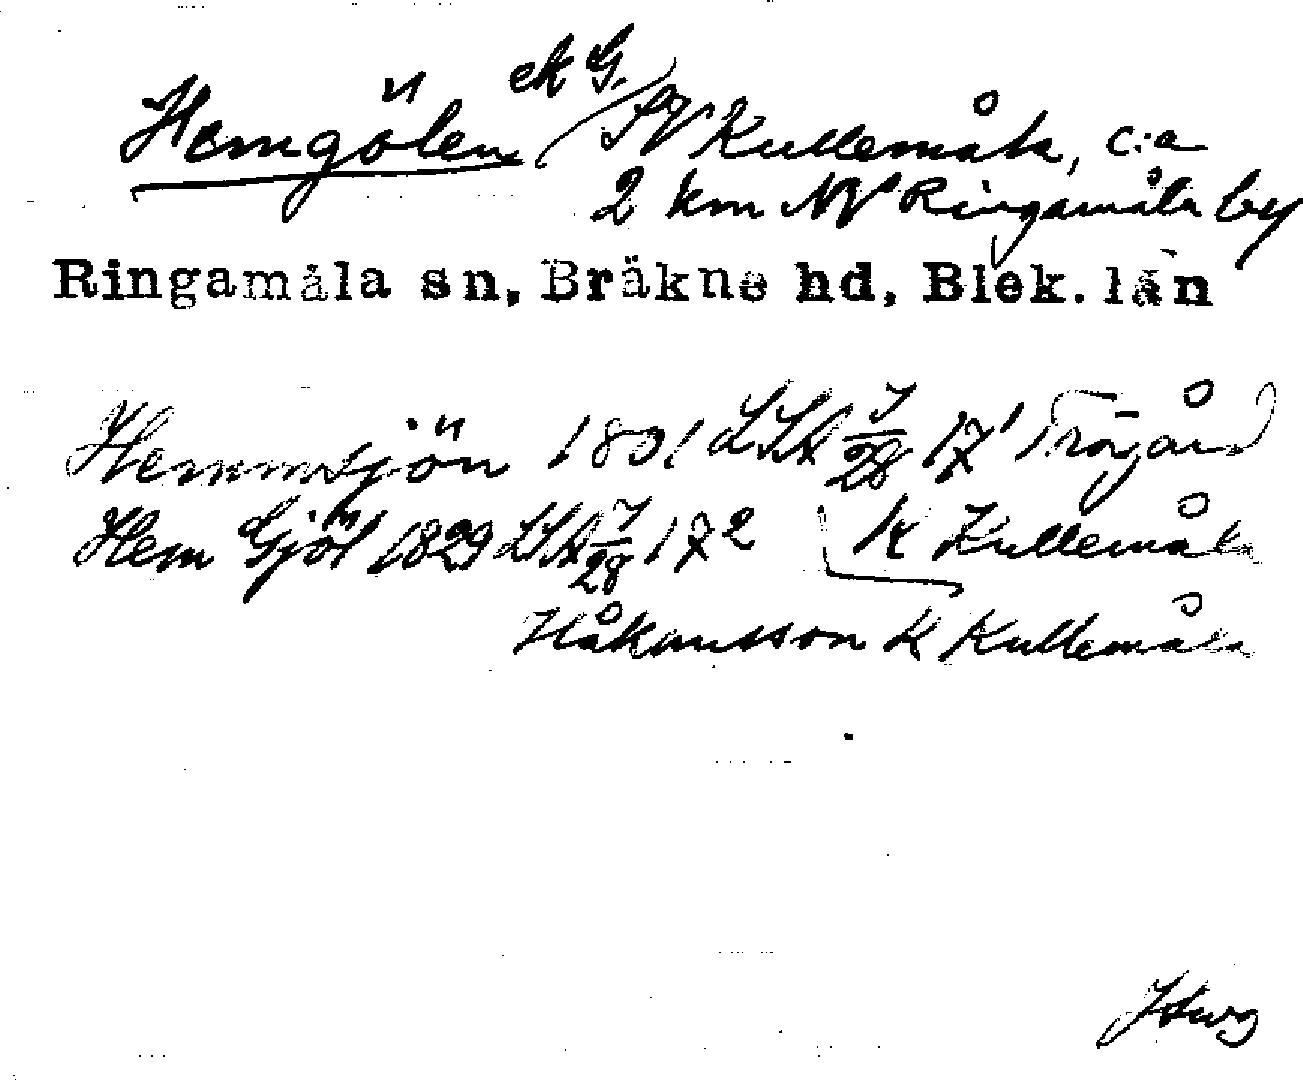 Hemgölen ek G. SV Kullemåla, c:a
2 km NV Ringamåla by
Ringamåla sn, Bräkne hd, Blek. län
Hemmsjön 1801 LSA J/28 17¹ Trögård
Hem Gjöl 1829 LSA J/28 17² K Kullemåla
Håkansson K Kullemåla